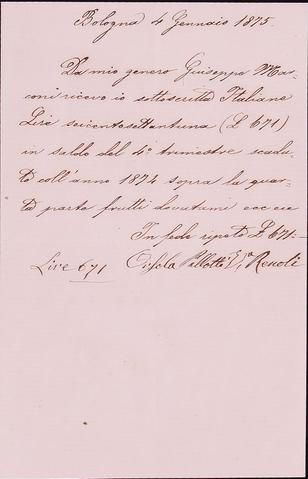 Bologna 4 Gennaio 1875.
Da mio genero Giuseppe Mar-
coni ricevo io sottoscritta Italiane
Lire seicentosettantuna (L 671)
in saldo del 4º trimestre scadu-
to coll'anno 1874 sopra la quar-
ta parte frutti dovutimi ecc ecc
In fede ripeto L 671.-
Lire 671 Orsola Pallotti Va Renoli